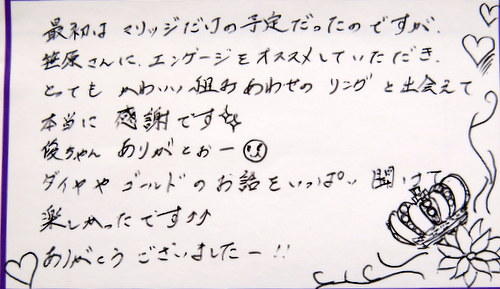 最初は マリッジだけの予定だったのですが、
笹原さんに、エンゲージをオススメしていただき、
とっても かわいい組みあわせの リング と出会えて
本当に 感謝です☆
俊ちゃん ありがとぉー
ダイヤや ゴールドの お話をいっぱい 聞けて
楽しかったです♪♪
ありがとう ございましたー!!